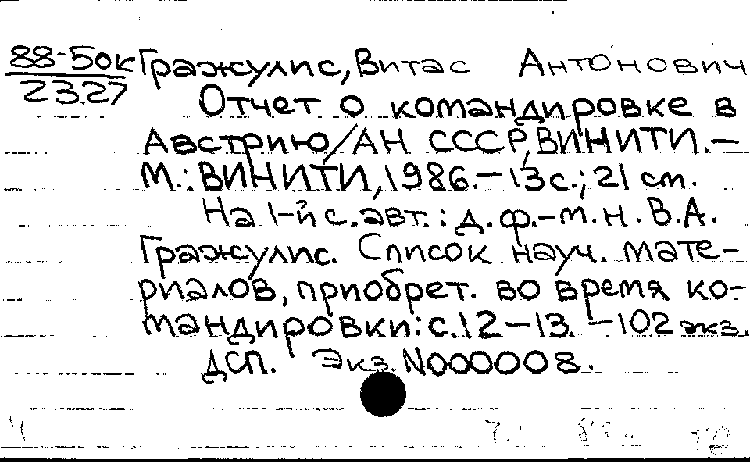 88-5ок Гражулис, Витас Антонович
2327
Отчет о командировке в
Австрию/АН СССР, ВИНИТИ.-
М.: ВИНИТИ, 1986.-13с.; 21 см.
На 1-й с. авт.: д.ф.-м.н. В.А.
Гражулис. Список науч. мате-
риалов, приобрет. во время ко-
мандировки: с.12-13. -102 экз.
ДСП. Экз. N000008.